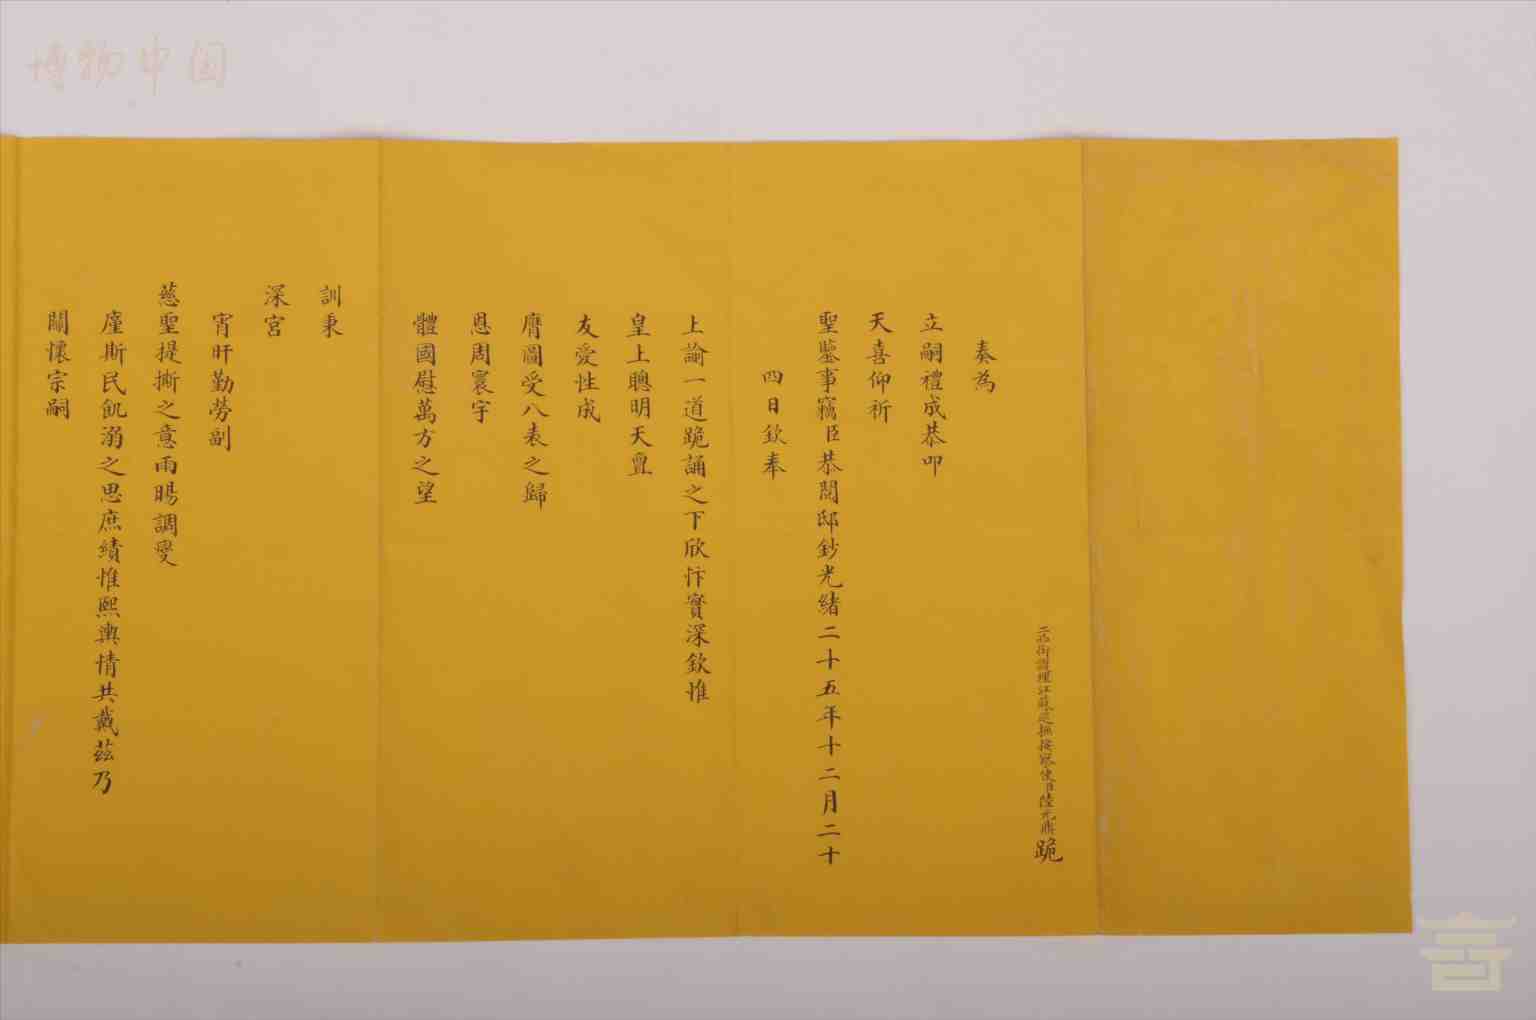 博物中国
二品銜護理江蘇巡撫按察使臣陸元鼎跪
奏為
立嗣禮成恭叩
天喜仰祈
聖鑒事竊臣恭閱邸鈔光緒二十五年十二月二十
四日欽奉
上諭一道跪誦之下欣忭實深欽惟
皇上聰明天亶
友愛性成
膺圖受八表之歸
恩周寰宇
體國慰萬方之望
訓秉
深宮
宵旰勤勞副
慈聖提撕之意雨暘調燮
廑斯民飢溺之思庶績惟熙輿情共戴茲乃
關懷宗嗣